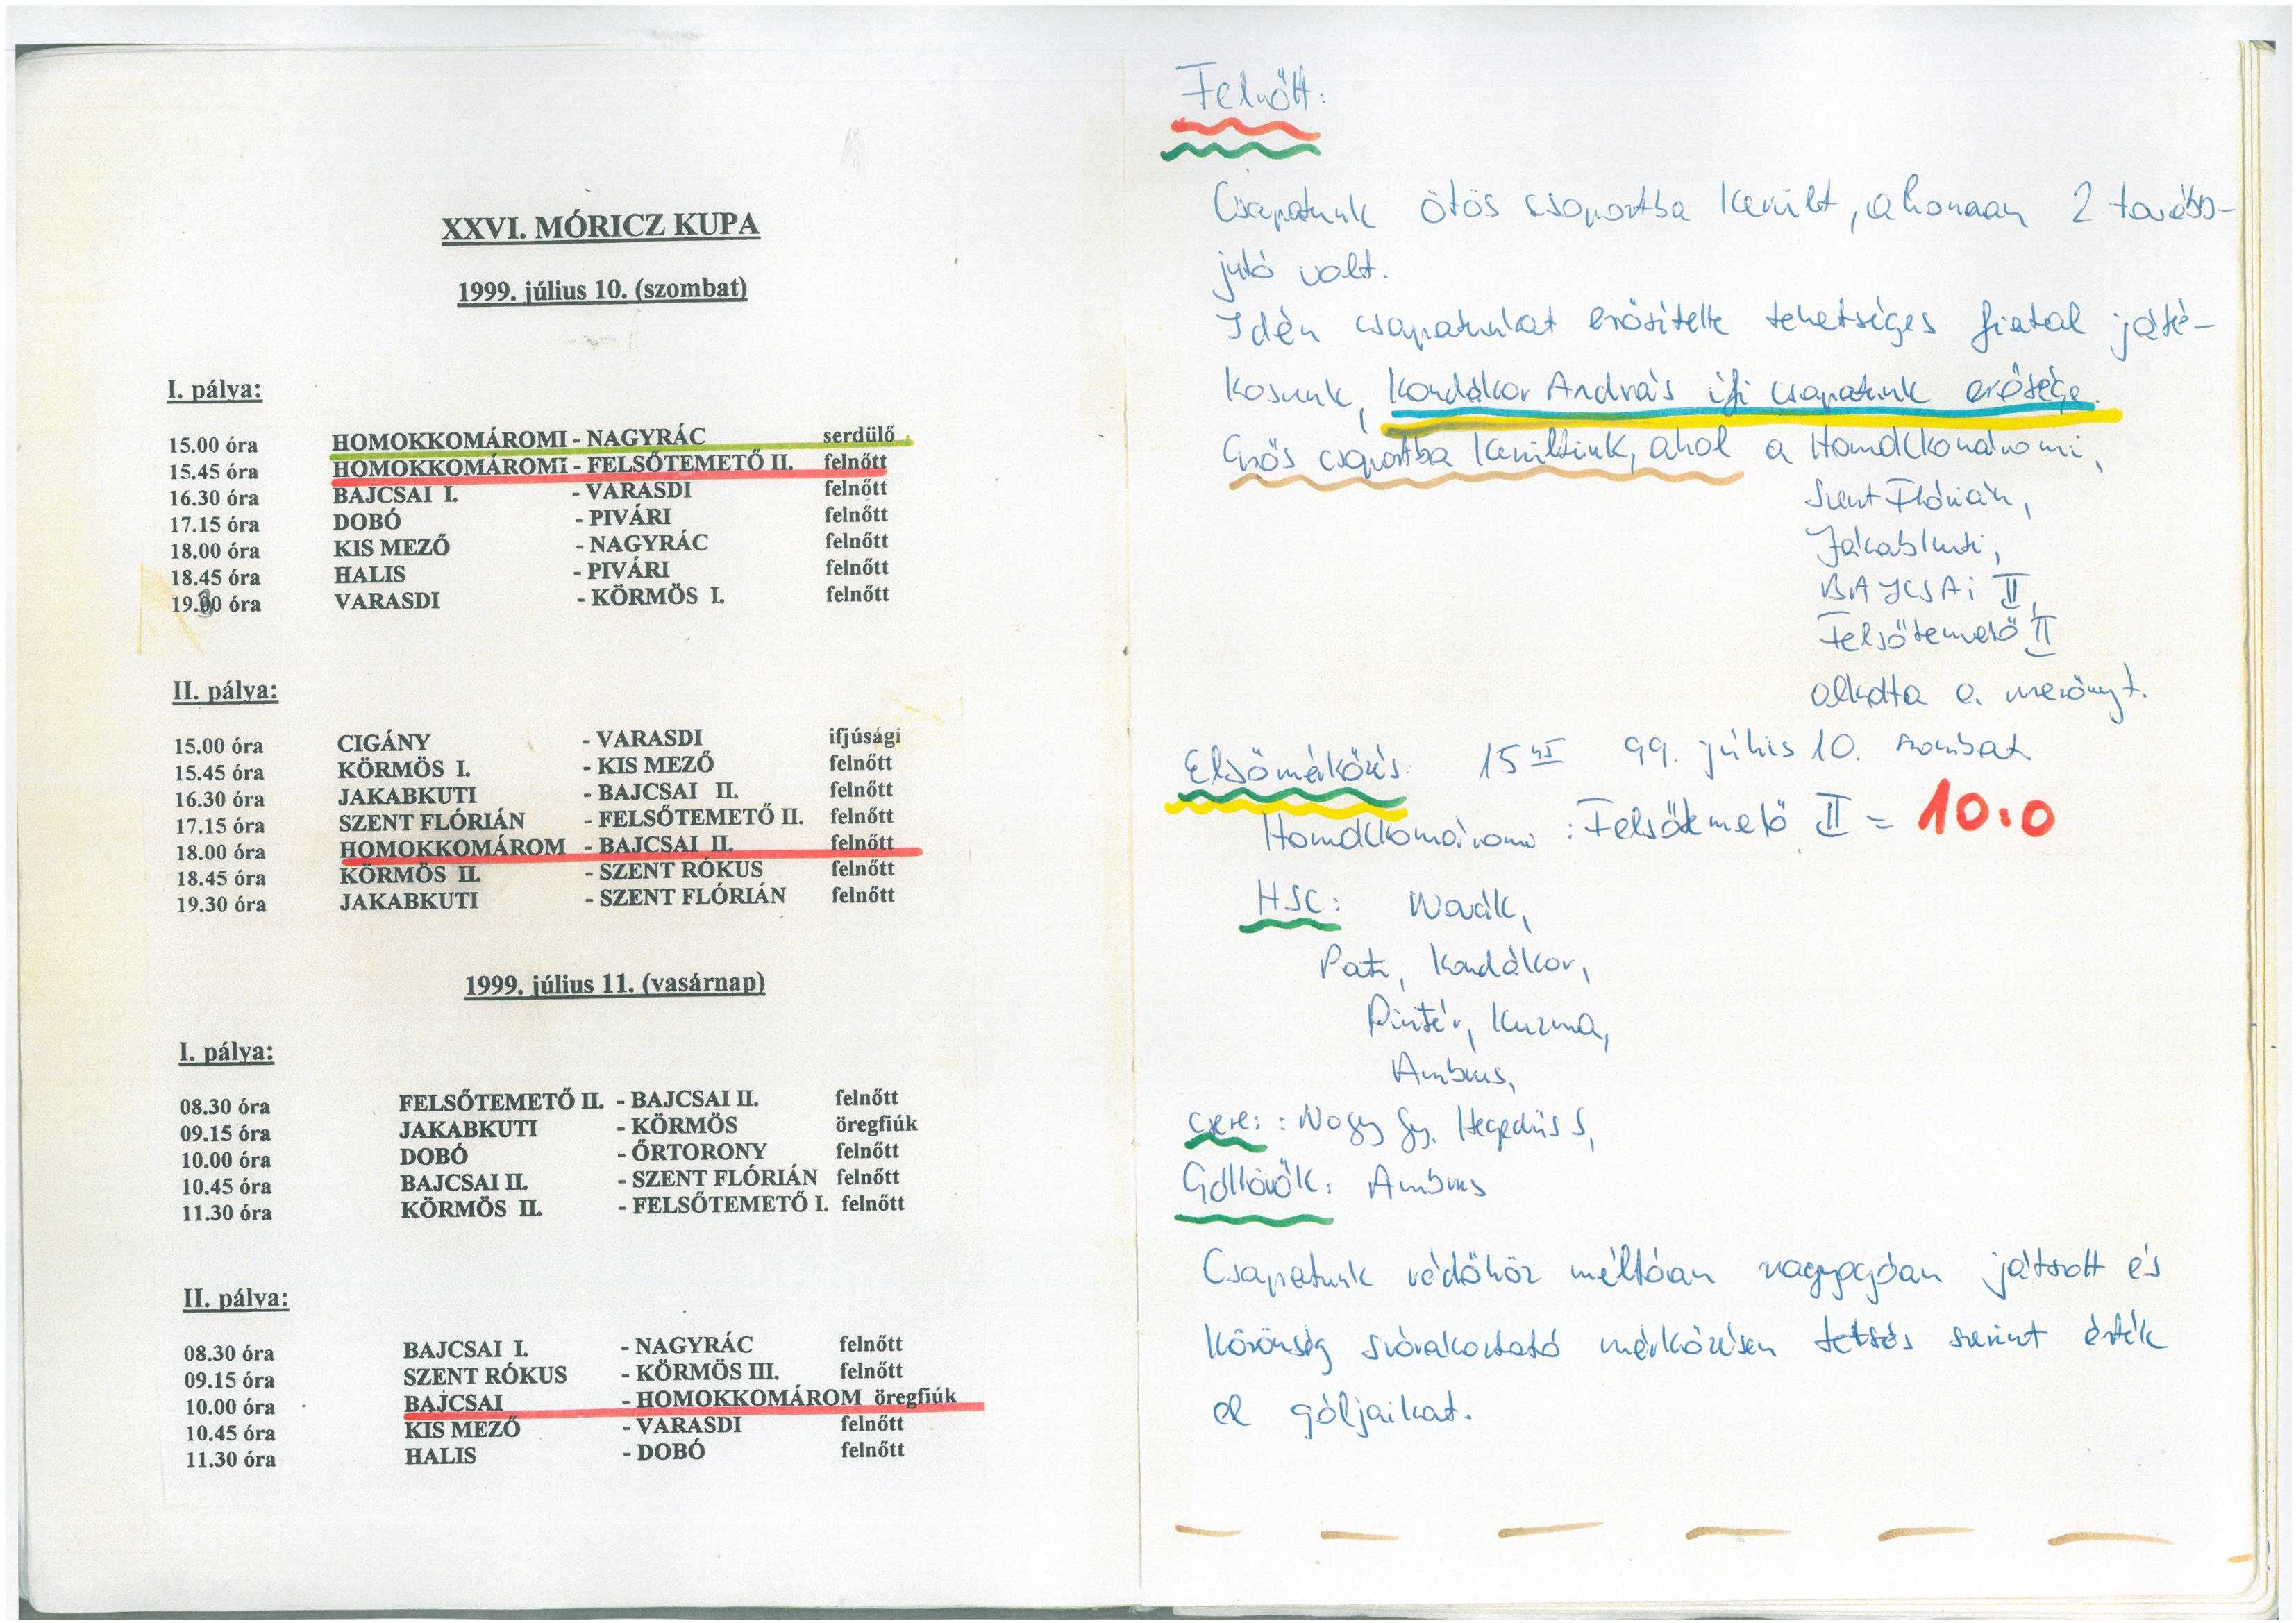 XXVI. MÓRICZ KUPA
1999. július 10. (szombat)
I. pálya:
15.00 óra HOMOKKOMÁROMI - NAGYRÁC serdülő
15.45 óra HOMOKKOMÁROMI - FELSŐTEMETŐ II. felnőtt
16.30 óra BAJCSAI I. - VARASDI felnőtt
17.15 óra DOBÓ - PIVÁRI felnőtt
18.00 óra KIS MEZŐ - NAGYRÁC felnőtt
18.45 óra HALIS - PIVÁRI felnőtt
19.30 óra VARASDI - KÖRMÖS I. felnőtt
II. pálya:
15.00 óra CIGÁNY - VARASDI ifjúsági
15.45 óra KÖRMÖS I. - KIS MEZŐ felnőtt
16.30 óra JAKABKUTI - BAJCSAI II. felnőtt
17.15 óra SZENT FLÓRIÁN - FELSŐTEMETŐ II. felnőtt
18.00 óra HOMOKKOMÁROM - BAJCSAI II. felnőtt
18.45 óra KÖRMÖS II. - SZENT RÓKUS felnőtt
19.30 óra JAKABKUTI - SZENT FLÓRIÁN felnőtt
1999. július 11. (vasárnap)
I. pálya:
08.30 óra FELSŐTEMETŐ II. - BAJCSAI II. felnőtt
09.15 óra JAKABKUTI - KÖRMÖS öregfiúk
10.00 óra DOBÓ - ŐRTORONY felnőtt
10.45 óra BAJCSAI II. - SZENT FLÓRIÁN felnőtt
11.30 óra KÖRMÖS II. - FELSŐTEMETŐ I. felnőtt
II. pálya:
08.30 óra BAJCSAI I. - NAGYRÁC felnőtt
09.15 óra SZENT RÓKUS - KÖRMÖS III. felnőtt
10.00 óra BAJCSAI - HOMOKKOMÁROM öregfiúk
10.45 óra KIS MEZŐ - VARASDI felnőtt
11.30 óra HALIS - DOBÓ felnőtt
Felnőtt:
Csapatunk ötös csoportba került, ahonnan 2 tovább-
jutó volt.
Idén csapatunkat erősítette tehetséges fiatal játé-
kosunk, Kondákor András ifi csapatunk erőssége.
Erős csoportba kerültünk, ahol a Homokkomáromi,
Szent Flórián,
Jakabkuti,
BAJCSAi II,
Felsőtemető II
alkotta a mezőnyt.
Elsőmérkőzés: 15 45 99. július 10. szombat
Homokkomáromi : Felsőtemető II = 10:0
HSC: Novák,
Pati, Kondákor,
Pintér, Kuzma,
Ambrus,
csere: : Nagy Gy. Hegedüs S,
Góllövők: Ambrus
Csapatunk védőhöz méltóan nagyogóan játszott és
közönség szórakoztató mérkőzésen tetszés szerint érték
el góljaikat.